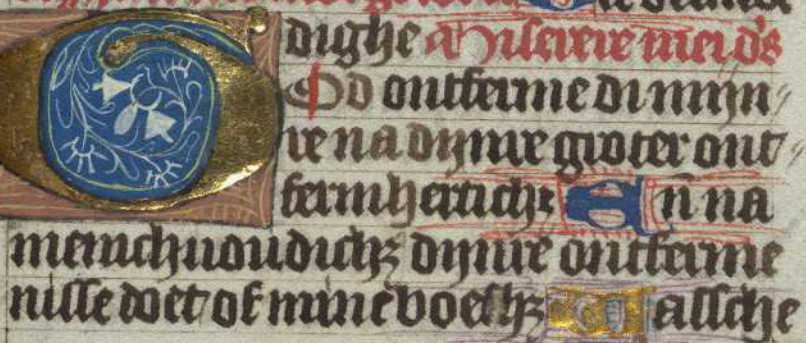 dighe Miserere mei d's
God ontferme di mijn
re na dijnre groter ont
fermherticht En na
menichuoudich dijnre ontferme
nisse doet of mine boesh Wassche